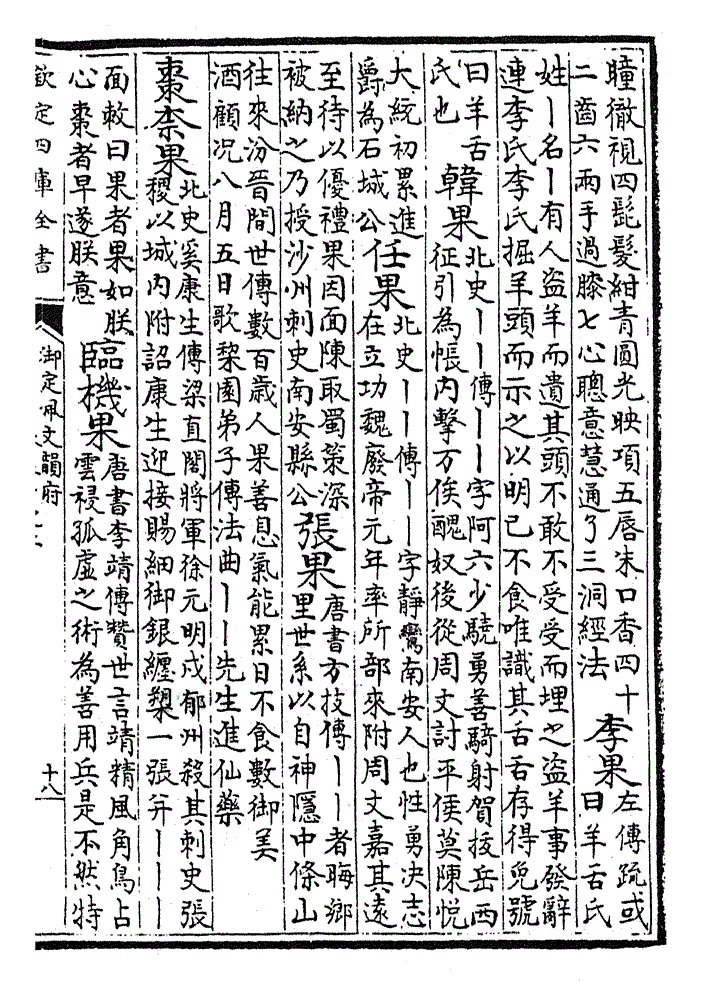 瞳徹視四髭髮紺青圓光映項五唇朱口香四十
二齒六兩手過膝七心聰意慧通了三洞經法
李果
左傳疏或
曰羊舌氏
姓丨名丨有人盜羊而遺其頭不敢不受受而埋之盜羊事發辭
連李氏李氏掘羊頭而示之以明己不食唯識其舌舌存得免號
曰羊舌
氏也
韓果
北史丨丨傳丨丨字阿六少驍勇善騎射賀拔岳西
征引為帳内擊万俟醜奴後從周文討平侯莫陳悅
大統初累進
爵為石城公
任果
北史丨丨傳丨丨字静鸞南安人也性勇決志
在立功魏廢帝元年率所部來附周文嘉其遠
至待以優禮果因面陳取蜀策深
被納之乃授沙州刺史南安縣公
張果
唐書方技傳丨丨者晦鄉
里世系以自神隱中條山
往來汾晉間世傳數百歲人果善息氣能累日不食數御美
酒顧况八月五日歌棃園弟子傳法曲丨丨先生進仙藥
棗柰果
北史奚康生傳梁直閣將軍徐元明戍郁州殺其刺史張
稷以城内附詔康生迎接賜細御銀纏槊一張并丨丨丨
面敕曰果者果如朕
心棗者早遂朕意
臨機果
唐書李靖傳贊世言靖精風角鳥占
雲祲孤虛之術為善用兵是不然特
欽定四庫全書
御定佩文韻府
十八